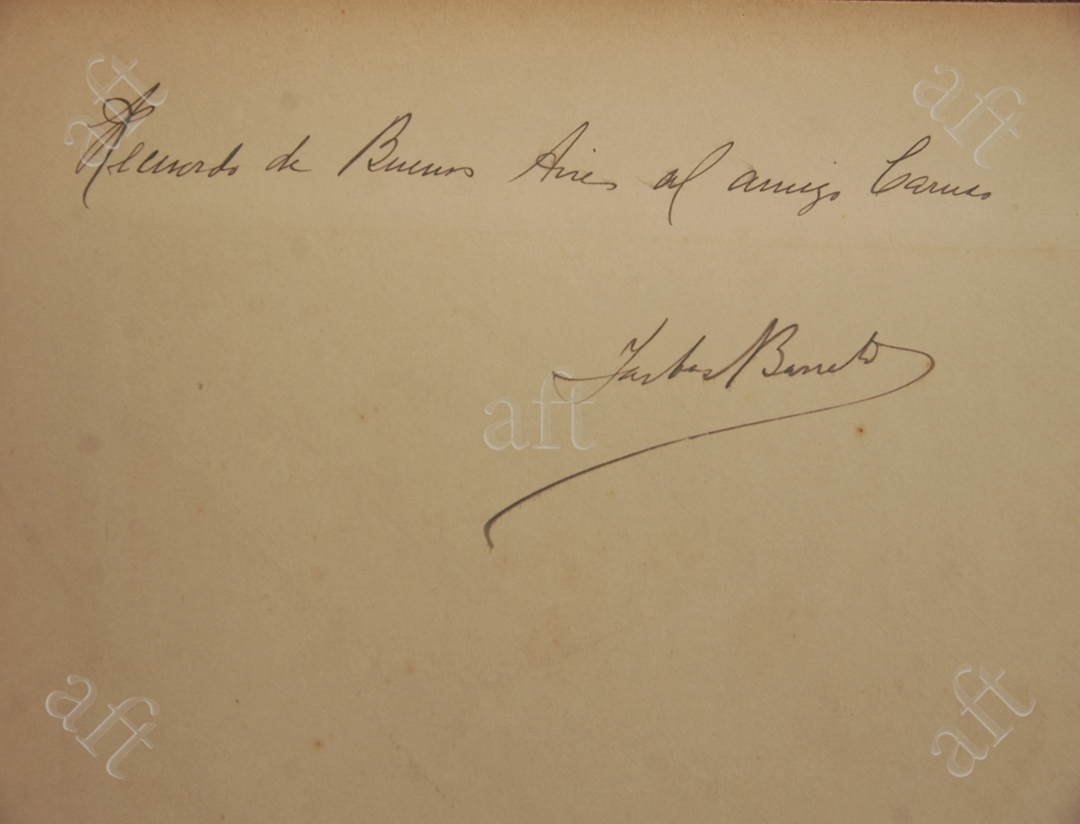 Recuerdo de Buenos Aires al amigo Caruso
Jarbas Barreto
aft
aft
aft
aft
aft